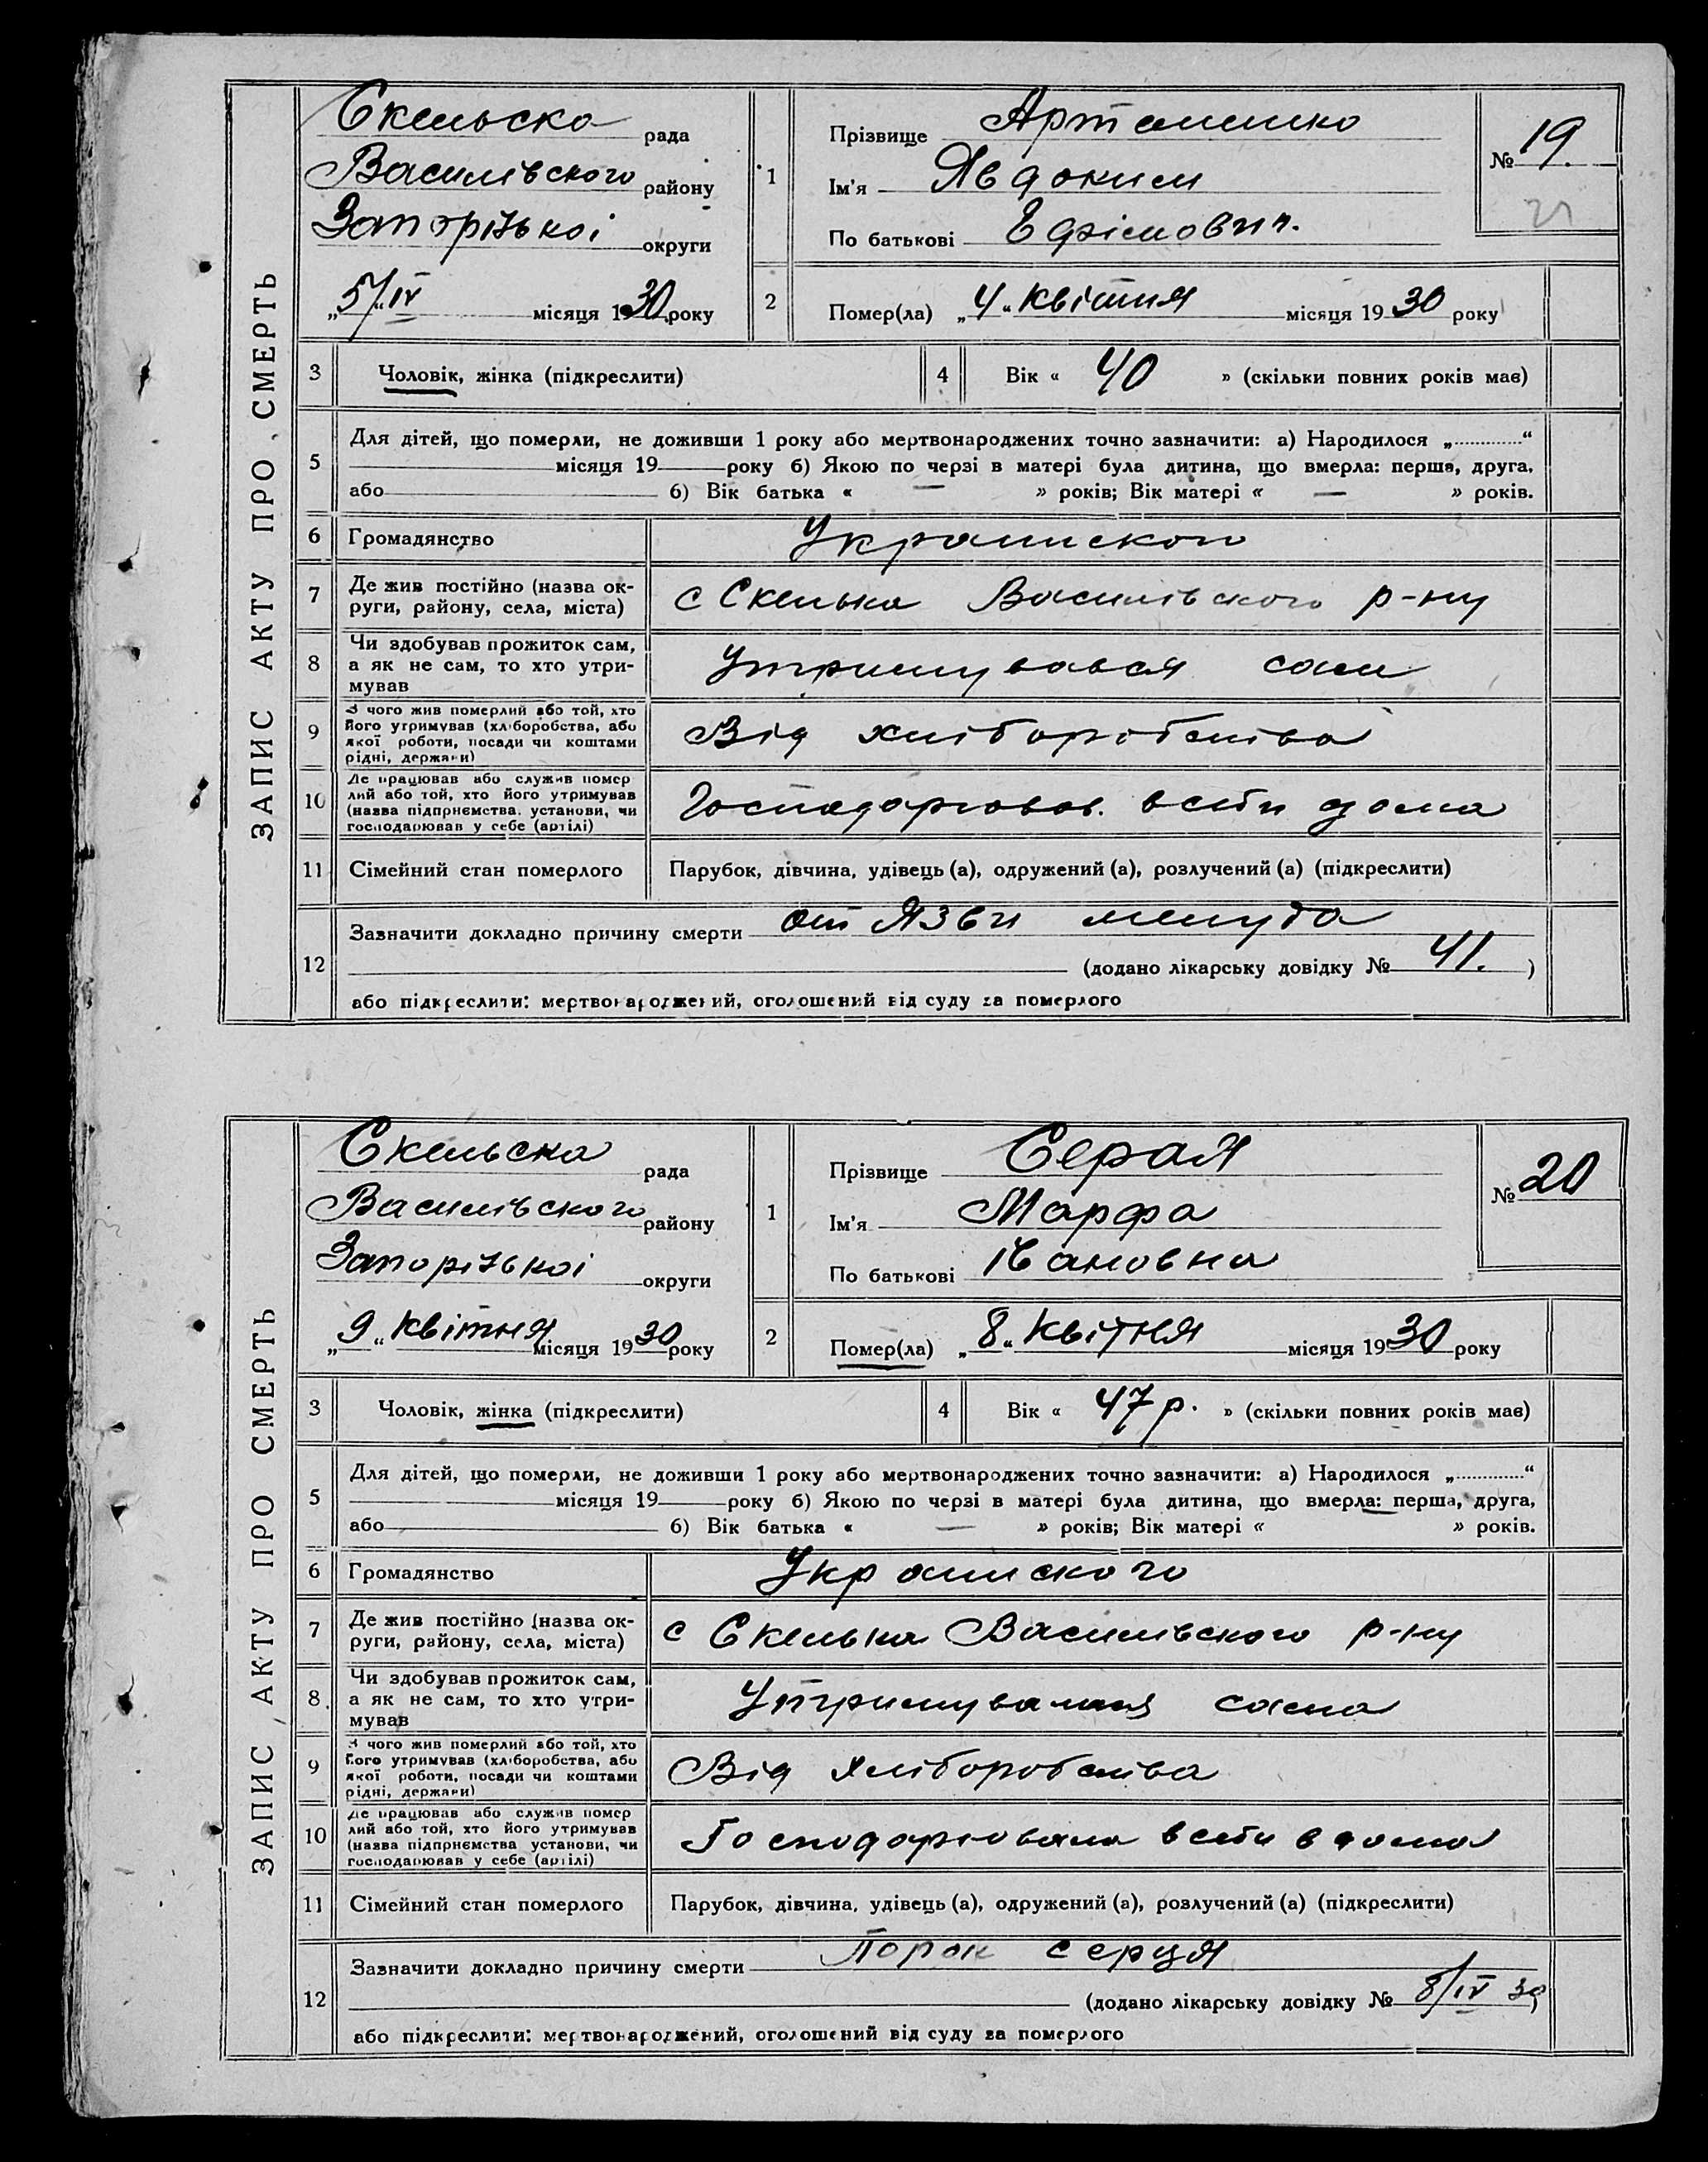 ЗАПИС АКТУ ПРО СМЕРТЬ
Скельска рада
Василівського району
Запорізької округи
„5/IV“ місяця 1930 року
1
Прізвище Артеменко
Ім'я Явдоким
По батькові Ефімович.
№ 19.
21
2
Помер(ла) „4“ квітня місяця 1930 року
3
Чоловік, жінка (підкреслити)
4
Вік « 40 » (скільки повних років має)
5
Для дітей, що померли, не доживши 1 року або мертвонароджених точно зазначити: а) Народилося „ “
місяця 19 року б) Якою по черзі в матері була дитина, що вмерла: перша, друга,
або 6) Вік батька « — » років; Вік матері « — » років.
6
Громадянство
Украинского
7
Де жив постійно (назва ок-
руги, району, села, міста)
с Скелька Василівского р-ну
8
Чи здобував прожиток сам,
а як не сам, то хто утри-
мував
Утримувався сам
9
З чого жив померлий або той, хто
його утримував (хліборобства, або
якої роботи, посади чи коштами
рідні, держави)
Від хліборобства
10
Де працював або служив помер
лий або той, хто його утримував
(назва підприємства, установи, чи
господарював у себе (артілі)
Господорював. всеби дома
11
Сімейний стан померлого
Парубок, дівчина, удівець (а), одружений (а), розлучений (а) (підкреслити)
12
Зазначити докладно причину смерти от Язви желудка
(додано лікарську довідку № 41. )
або підкреслити: мертвонароджений, оголошений від суду за померлого
ЗАПИС АКТУ ПРО СМЕРТЬ
Скельска рада
Василівского району
Запорізької округи
„9“ квітня місяця 1930 року
1
Прізвище Серая
Ім'я Марфа
По батькові Івановна
№ 20
2
Помер(ла) „8“ квітня місяця 1930 року
3
Чоловік, жінка (підкреслити)
4
Вік « 47 р. » (скільки повних років має)
5
Для дітей, що померли, не доживши 1 року або мертвонароджених точно зазначити: а) Народилося „ “
місяця 19 року б) Якою по черзі в матері була дитина, що вмерла: перша, друга,
або 6) Вік батька « — » років; Вік матері « » років.
6
Громадянство
Украинского
7
Де жив постійно (назва ок-
руги, району, села, міста)
с Скелька Василивского р-ну
8
Чи здобував прожиток сам,
а як не сам, то хто утри-
мував
Утримувалася сама
9
З чого жив померлий або той, хто
його утримував (хліборобства, або
якої роботи, посади чи коштами
рідні, держави)
Від хліборобства
10
Де працював або служив помер
лий або той, хто його утримував
(назва підприємства установи, чи
господарював у себе (артілі)
Господорювала всеби в дома
11
Сімейний стан померлого
Парубок, дівчина, удівець (а), одружений (а), розлучений (а) (підкреслити)
12
Зазначити докладно причину смерти Порок серця
(додано лікарську довідку № 8/IV 30)
або підкреслити: мертвонароджений, оголошений від суду за померлого